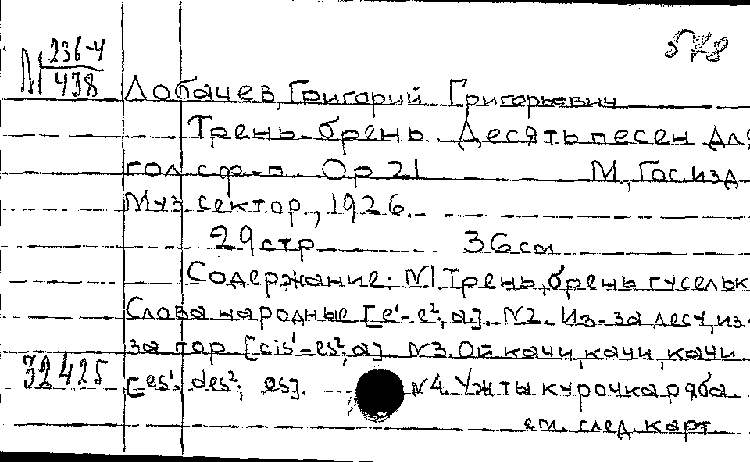 578
М 236-4
438
Лобачев, Григорий Григорьевич
Трень-брень. Десять песен для
гол с ф-п. Op 21 М., Госизд
Муз сектор, 1926.
29 стр 36 см
Содержание: №1 Трень, брень гусельк
Слова народные [e¹-e², a]. №2. Из-за лесу, из-
за гор [cis¹-es², a] №3. Ой качи, качи, качи
32425 [es¹-des², es]. №4. Уж ты курочка ряба
см. след. карт